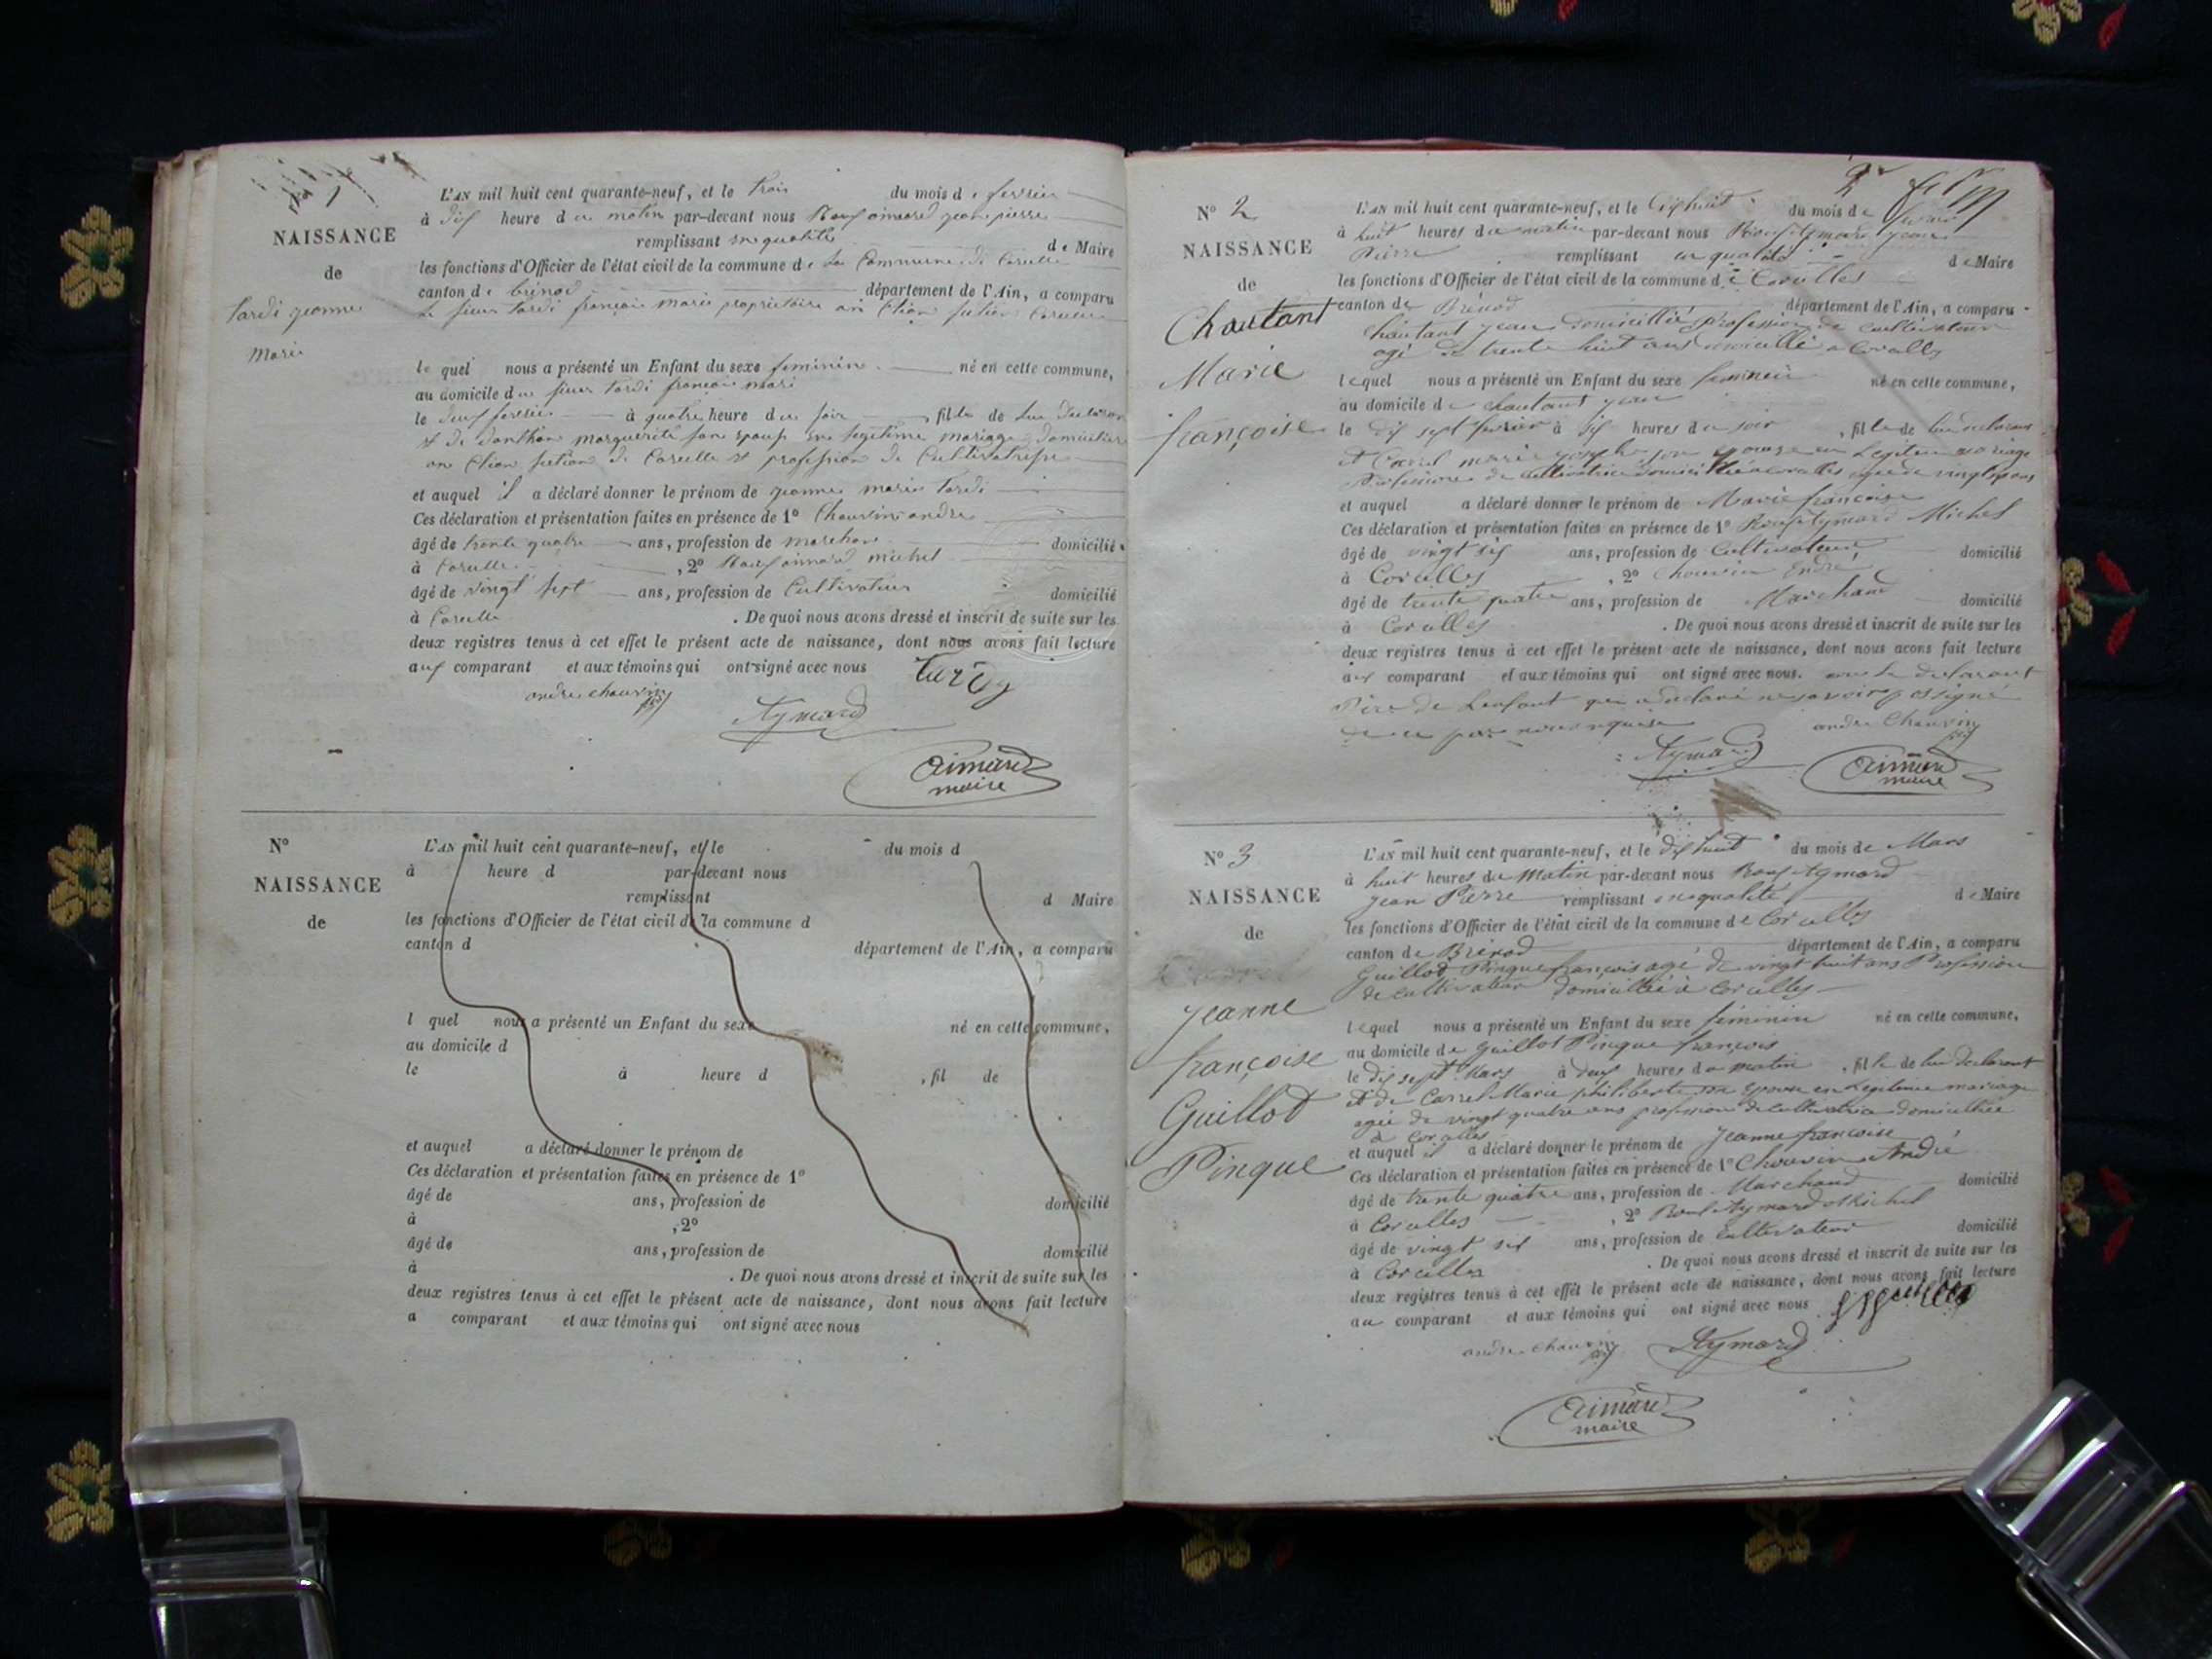 1
NAISSANCE
de
tardi jeanne
Marie
L'AN mil huit cent quarante-neuf, et le trois du mois de fevrier
à dix heure du matin par-devant nous Roux aimard jean pierre
remplissant en qualité de Maire
les fonctions d'Officier de l'état civil de la commune de la Commune de Corcelle
canton de brénod département de l'Ain, a comparu
le sieur tardi françois marie propriétaire Corcelle
le quel nous a présenté un Enfant du sexe feminine né en cette commune,
au domicile du sieur tardi françois mari
le deux fevrier à quatre heure du soir, fille de lui declarant
et de marguerite son epouse en legitime mariage domicilier
de Corcelle et profession de Cultivatrise
et auquel il a déclaré donner le prénom de jeanne marie tardi
Ces déclaration et présentation faites en présence de 1º Chauvin andré
âgé de trente quatre ans, profession de marchand domicilié
à Corcelle, 2º Roux aimard michel
âgé de vingt sept ans, profession de Cultivateur domicilié
à Corcelle. De quoi nous avons dressé et inscrit de suite sur les
deux registres tenus à cet effet le présent acte de naissance, dont nous avons fait lecture
aux comparant et aux témoins qui ont signé avec nous Tardy
andré chauvin
Aymard
Aimard
maire
Nº
NAISSANCE
de
L'AN mil huit cent quarante-neuf, et le du mois d
à heure d par-devant nous
remplissant d Maire
les fonctions d'Officier de l'état civil de la commune d
canton d département de l'Ain, a comparu
l quel nous a présenté un Enfant du sexe né en cette commune,
au domicile d
le à heure d , fil de
et auquel a déclaré donner le prénom de
Ces déclaration et présentation faites en présence de 1º
âgé de ans, profession de domicilié
à , 2º
âgé de ans, profession de domicilié
à . De quoi nous avons dressé et inscrit de suite sur les
deux registres tenus à cet effet le présent acte de naissance, dont nous avons fait lecture
a comparant et aux témoins qui ont signé avec nous
Nº 2
NAISSANCE
de
Chautant
Marie
françoise
L'AN mil huit cent quarante-neuf, et le dixhuit du mois de fevrier
à huit heures du matin par-devant nous Roux Aymard jean
Pierre remplissant en qualité de Maire
les fonctions d'Officier de l'état civil de la commune de Corcelles
canton de Brénod département de l'Ain, a comparu
Chautant jean domicillié profession de cultivateur
agé de trente huit ans domicillié a Corcelles
lequel nous a présenté un Enfant du sexe feminin né en cette commune,
au domicile de chautant jean
le dix sept fevrier à six heures du soir, fille de lui declarant
et Carrel marie josephe son epouse en Legitime mariage
Profession de cultivatrice domicilliée a corcelles agée de vingt ans
et auquel a déclaré donner le prénom de Marie françoise
Ces déclaration et présentation faites en présence de 1º Roux Aymard Michel
âgé de vingt six ans, profession de Cultivateur domicilié
à Corcelles, 2º Chauvin André
âgé de trente quatre ans, profession de Marchand domicilié
à Corcelles. De quoi nous avons dressé et inscrit de suite sur les
deux registres tenus à cet effet le présent acte de naissance, dont nous avons fait lecture
aux comparant et aux témoins qui ont signé avec nous. non le declarant
Père de Lenfant qui a declaré ne savoir pas signé
de ce par nous requise
andré Chauvin
Aymard
Aimard
maire
Nº 3
NAISSANCE
de
jeanne
françoise
Guillot
Pinque
L'AN mil huit cent quarante-neuf, et le dix huit du mois de Mars
à huit heures du Matin par-devant nous Roux Aymard
jean Pierre remplissant en qualité de Maire
les fonctions d'Officier de l'état civil de la commune de Corcelles
canton de Brénod département de l'Ain, a comparu
Guillot Pinque françois agé de vingt huit ans Profession
de cultivateur domicillié à Corcelles
lequel nous a présenté un Enfant du sexe feminin né en cette commune,
au domicile de Guillot Pinque françois
le dix sept Mars à deux heures du matin, fille de lui declarant
et de Carrel Marie philiberte son Epouse en Legitime mariage
agée de vingt quatre ans profession de cultivatrice domicilliée
à Corcelles
et auquel il a déclaré donner le prénom de jeanne françoise
Ces déclaration et présentation faites en présence de 1º Chauvin André
âgé de trente quatre ans, profession de Marchand domicilié
à Corcelles, 2º Roux Aymard Michel
âgé de vingt six ans, profession de cultivateur domicilié
à Corcelles. De quoi nous avons dressé et inscrit de suite sur les
deux registres tenus à cet effet le présent acte de naissance, dont nous avons fait lecture
au comparant et aux témoins qui ont signé avec nous
andré chauvin
Aymard
Aimard
maire